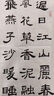 遲日江山麗春
風花草香泥融
飛燕子沙暖睡